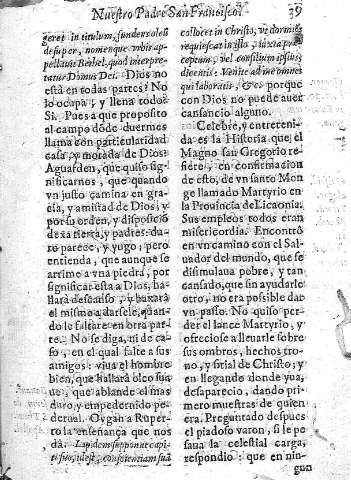 Nuestro Padre San Francisco. 39
geret in titulum, fundens oleū
desuper, nomenque vrbis ap-
pellauit Bethel. quod interpre-
tatur Domus Dei. Dios no
està en todas partes? No
lo ocupa, y llena todo?
Si. Pues a que proposito
al campo dōde duermes
llama con particularidad
casa, y morada de Dios?
Aguarden, que quiso sig-
nificarnos, que quando
vn justo camina en gra-
cia, y amistad de Dios, y
por su orden, y disposiciō
dexa tierra, y padres: du-
ro parece, y yugo; pero
entienda, que aunque se
arrime a vna piedra, por
significar esta a Dios, ha-
llarà descāso, y baxarà
el mismo a darsele, quan-
do le faltare en otra par-
te. No se diga, ni de ca-
so, en el qual falte a sus
amigos: viua el hombre
bien, que hallarà oleo sua-
ue, que ablande el mas
duro, y empedernido pe-
dernal. Oygan a Ruper-
to la enseñança que nos
dà. Lapidem supponat capi-
ti suo, idest, conscientiam suā
collocet in Christo, vt dormiēs
requiescat in illo, iuxta præ-
ceptum, vel consilium ipsius
dicentis: Venite ad me omnes
qui laboratis, &c. porque
con Dios no puede auer
cansancio alguno.
Celebre, y entreteni-
da es la Historia que el
Magno san Gregorio re-
fiere, en confirmacion
de esto, de vn santo Mon
ge llamado Martyrio en
la Prouincia de Licaonia.
Sus empleos todos eran
misericordia. Encontrò
en vn camino con el Sal-
uador del mundo, que se
dissimulaua pobre, y tan
cansado, que sin ayudarle
otro, no era possible dar
vn passo. No quiso per-
der el lance Martyrio, y
ofreciose a lleuarle sobre
sus ombros, hechos tro-
no, y sitial de Christo; y
en llegando donde yua,
desaparecio, dando pri-
mero muestras de quien
era. Preguntado despues
el piadoso varon, si le pe-
saua la celestial carga,
respondio: que en nin-
gun